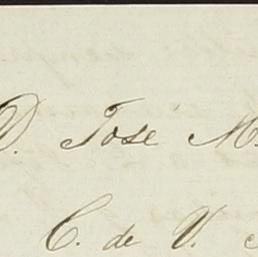 D. José M.
C. de V.